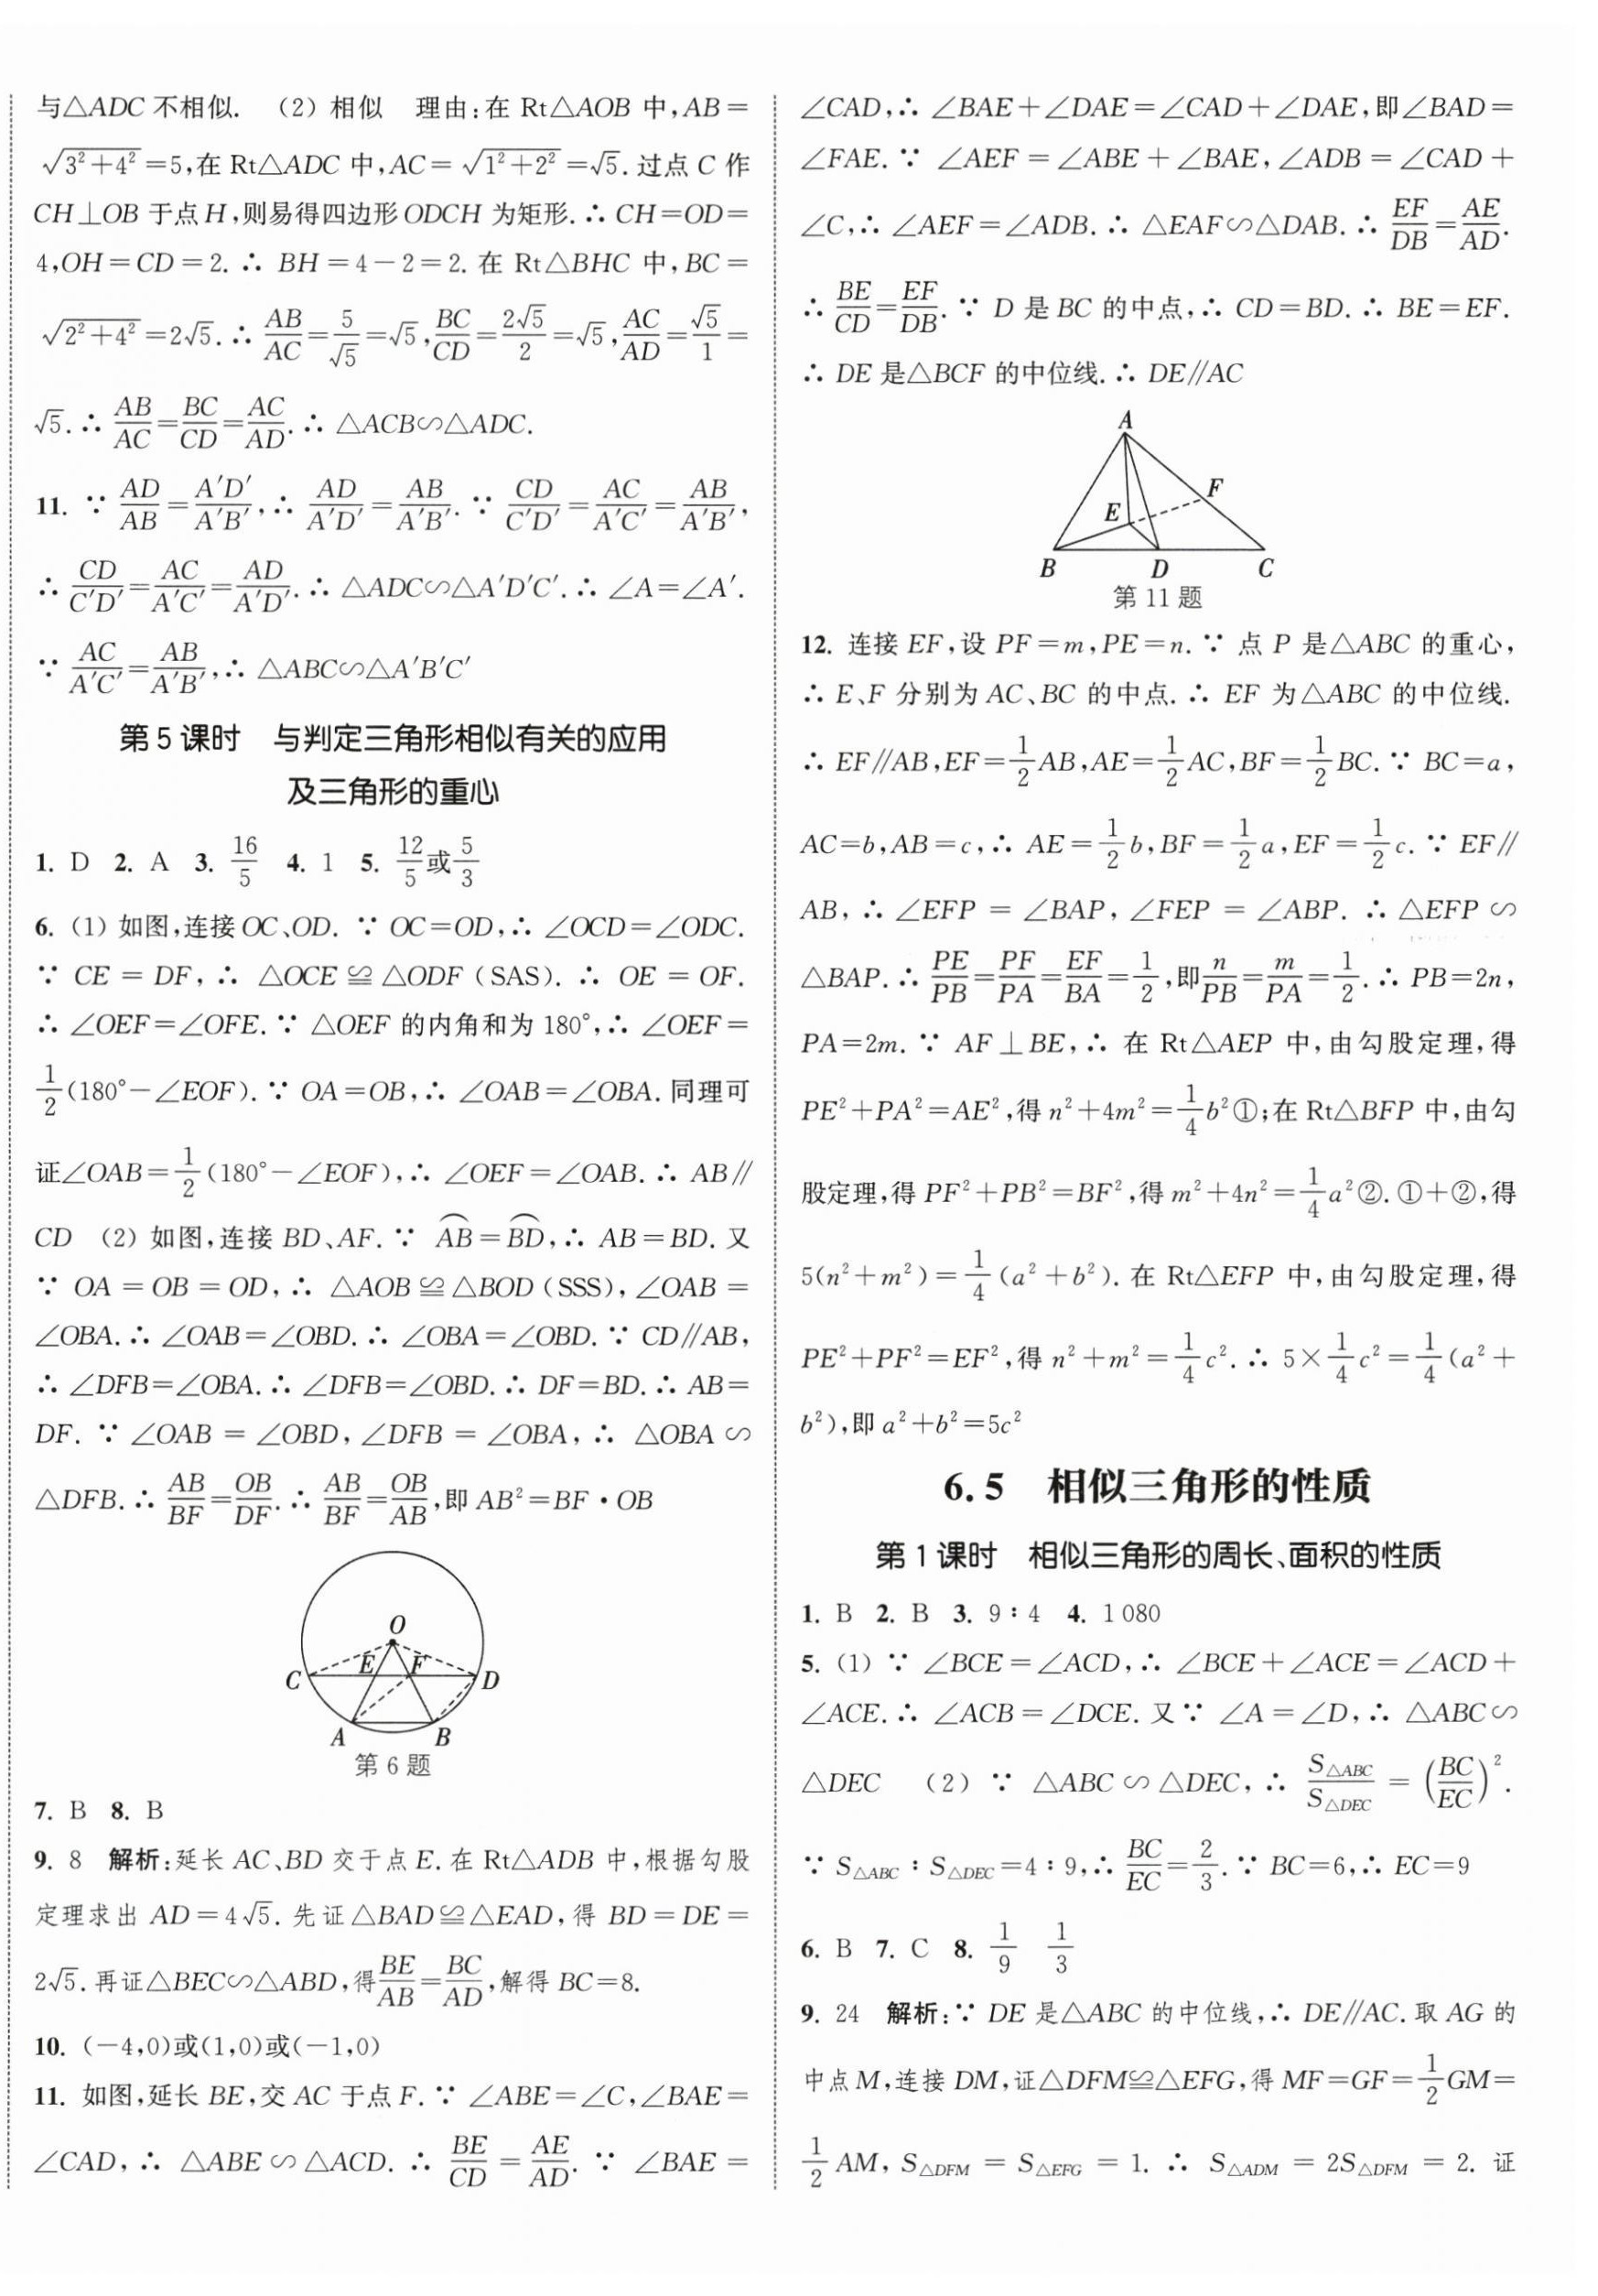 与△ADC 不相似. (2) 相似 理由:在 Rt△AOB 中,AB=
√(3²+4²)=5,在 Rt△ADC 中,AC=√(1²+2²)=√5.过点 C 作
CH⊥OB 于点H,则易得四边形ODCH 为矩形.∴ CH=OD=
4,OH=CD=2.∴ BH=4-2=2.在 Rt△BHC 中,BC=
√(2²+4²)=2√5.∴ AB/AC=5/√5=√5,BC/CD=2√5/2=√5,AC/AD=√5/1=
√5.∴ AB/AC=BC/CD=AC/AD.∴ △ACB∽△ADC.
11. ∵ AD/AB=A′D′/A′B′,∴ AD/A′D′=AB/A′B′.∵ CD/C′D′=AC/A′C′=AB/A′B′,
∴ CD/C′D′=AC/A′C′=AD/A′D′.∴ △ADC∽△A′D′C′.∴ ∠A=∠A′.
∵ AC/A′C′=AB/A′B′,∴ △ABC∽△A′B′C′
第5课时 与判定三角形相似有关的应用
及三角形的重心
1. D 2. A 3. 16/5 4. 1 5. 12/5或5/3
6. (1) 如图,连接OC、OD. ∵ OC=OD,∴ ∠OCD=∠ODC.
∵ CE=DF,∴ △OCE≌△ODF(SAS).∴ OE=OF.
∴ ∠OEF=∠OFE.∵ △OEF 的内角和为180°,∴ ∠OEF=
1/2(180°-∠EOF).∵ OA=OB,∴ ∠OAB=∠OBA.同理可
证∠OAB=1/2(180°-∠EOF),∴ ∠OEF=∠OAB.∴ AB∥
CD (2) 如图,连接 BD、AF.∵ ⌒AB=⌒BD,∴ AB=BD.又
∵ OA=OB=OD,∴ △AOB≌△BOD(SSS),∠OAB=
∠OBA.∴ ∠OAB=∠OBD.∴ ∠OBA=∠OBD.∵ CD∥AB,
∴ ∠DFB=∠OBA.∴ ∠DFB=∠OBD.∴ DF=BD.∴ AB=
DF.∵ ∠OAB=∠OBD,∠DFB=∠OBA,∴ △OBA∽
△DFB.∴ AB/BF=OB/DF.∴ AB/BF=OB/AB,即 AB²=BF·OB
O
C E F D
A B
第6题
7. B 8. B
9. 8 解析:延长 AC、BD 交于点 E.在 Rt△ADB 中,根据勾股
定理求出 AD=4√5.先证△BAD≌△EAD,得 BD=DE=
2√5.再证△BEC∽△ABD,得BE/AB=BC/AD,解得 BC=8.
10. (-4,0)或(1,0)或(-1,0)
11. 如图,延长 BE,交 AC 于点F.∵ ∠ABE=∠C,∠BAE=
∠CAD,∴ △ABE∽△ACD.∴ BE/CD=AE/AD.∵ ∠BAE=
∠CAD,∴ ∠BAE+∠DAE=∠CAD+∠DAE,即∠BAD=
∠FAE.∵ ∠AEF=∠ABE+∠BAE,∠ADB=∠CAD+
∠C,∴ ∠AEF=∠ADB.∴ △EAF∽△DAB.∴ EF/DB=AE/AD.
∴ BE/CD=EF/DB.∵ D 是BC 的中点,∴ CD=BD.∴ BE=EF.
∴ DE 是△BCF 的中位线.∴ DE∥AC
A
F
E
B D C
第11题
12. 连接 EF,设 PF=m,PE=n.∵ 点 P 是△ABC 的重心,
∴ E、F 分别为 AC、BC 的中点.∴ EF 为△ABC 的中位线.
∴ EF∥AB,EF=1/2AB,AE=1/2AC,BF=1/2BC.∵ BC=a,
AC=b,AB=c,∴ AE=1/2b,BF=1/2a,EF=1/2c.∵ EF∥
AB,∴ ∠EFP=∠BAP,∠FEP=∠ABP.∴ △EFP∽
△BAP.∴ PE/PB=PF/PA=EF/BA=1/2,即n/PB=m/PA=1/2.∴ PB=2n,
PA=2m.∵ AF⊥BE,∴ 在 Rt△AEP 中,由勾股定理,得
PE²+PA²=AE²,得n²+4m²=1/4b²①;在Rt△BFP 中,由勾
股定理,得PF²+PB²=BF²,得m²+4n²=1/4a²②.①+②,得
5(n²+m²)=1/4(a²+b²).在 Rt△EFP 中,由勾股定理,得
PE²+PF²=EF²,得 n²+m²=1/4c².∴ 5×1/4c²=1/4(a²+
b²),即 a²+b²=5c²
6.5 相似三角形的性质
第1课时 相似三角形的周长、面积的性质
1. B 2. B 3. 9∶4 4. 1 080
5. (1) ∵ ∠BCE=∠ACD,∴ ∠BCE+∠ACE=∠ACD+
∠ACE.∴ ∠ACB=∠DCE.又∵ ∠A=∠D,∴ △ABC∽
△DEC (2) ∵ △ABC∽△DEC,∴ S△ABC/S△DEC=(BC/EC)².
∵ S△ABC∶S△DEC=4∶9,∴ BC/EC=2/3.∵ BC=6,∴ EC=9
6. B 7. C 8. 1/9 1/3
9. 24 解析:∵ DE 是△ABC 的中位线,∴ DE∥AC.取 AG 的
中点M,连接 DM,证△DFM≌△EFG,得 MF=GF=1/2GM=
1/2AM,S△DFM=S△EFG=1.∴ S△ADM=2S△DFM=2.证